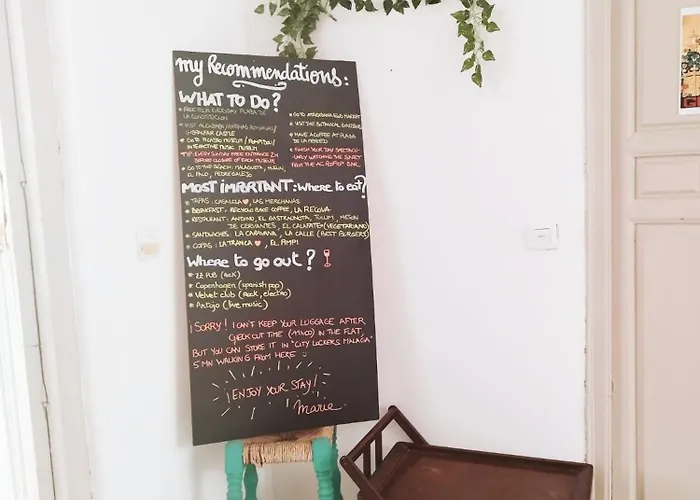 my Recommendations:
WHAT TO DO?
* FREE TOUR EVERYDAY PLAZA DE
LA CONSTITUCION
* VISIT ALCAZABA /
GIBRALFAR CASTLE
* GO TO PICASSO MUSEUM / POMPIDOU /
INTERACTIVE MUSIC MUSEUM
TIP: EVERY SUNDAY FREE ENTRANCE 2H
BEFORE CLOSURE OF EACH MUSEUM
* GO TO THE BEACH: MALAGUETA,
EL PALO, PEDREGALEJO
* GO TO ATARAZANAS FOOD MARKET
* VISIT THE BOTANICAL GARDENS
* HAVE A COFFEE AT PLAZA
DE LA MERCED
* FINISH YOUR DAY SPECTACU-
LARLY WATCHING THE SUNSET
FROM THE AC ROOFTOP BAR
MOST IMPORTANT: Where to eat?
* TAPAS: CASALOLA ♥, LAS MERCHANAS
* BREAKFAST: RECYCLO BIKE COFFEE, LA RECOVA
* RESTAURANT: ANDINO, EL GASTRONAUTA, TULUM, MESON
DE CERVANTES, EL CALAFATE (VEGETARIANO)
* SANDWICHS: LA CARAVANA, LA CALLE (BEST BURGERS)
* COPAS: LA TRANCA ♥, EL PIMPI
Where to go out?
* ZZ PUB (Rock)
* Copenhagen (spanish pop)
* Velvet club (Rock, electro)
* Antojo (live music)
¡SORRY! I CAN'T KEEP YOUR LUGGAGE AFTER
CHECK OUT TIME (11H00) IN THE FLAT,
BUT YOU CAN STORE IT IN "CITY LOCKERS MALAGA"
5 MN WALKING FROM HERE
¡ENJOY YOUR STAY!
Marie